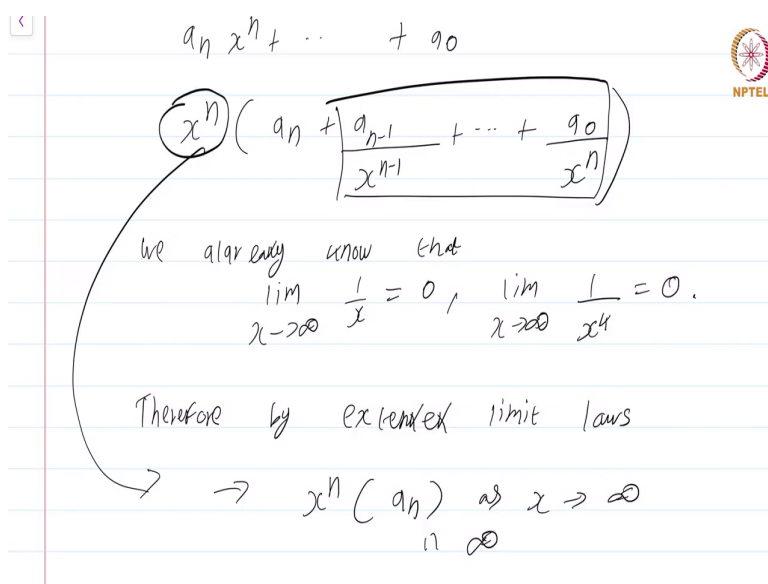 aₙ xⁿ + ·· + a₀
NPTEL
xⁿ ( aₙ + aₙ₋₁/xⁿ⁻¹ + ··· + a₀/xⁿ )
We alaready know that
lim x->∞ 1/x = 0, lim x->∞ 1/x⁴ = 0.
Therefore by limit laws
→ xⁿ ( aₙ ) as x → ∞
∞